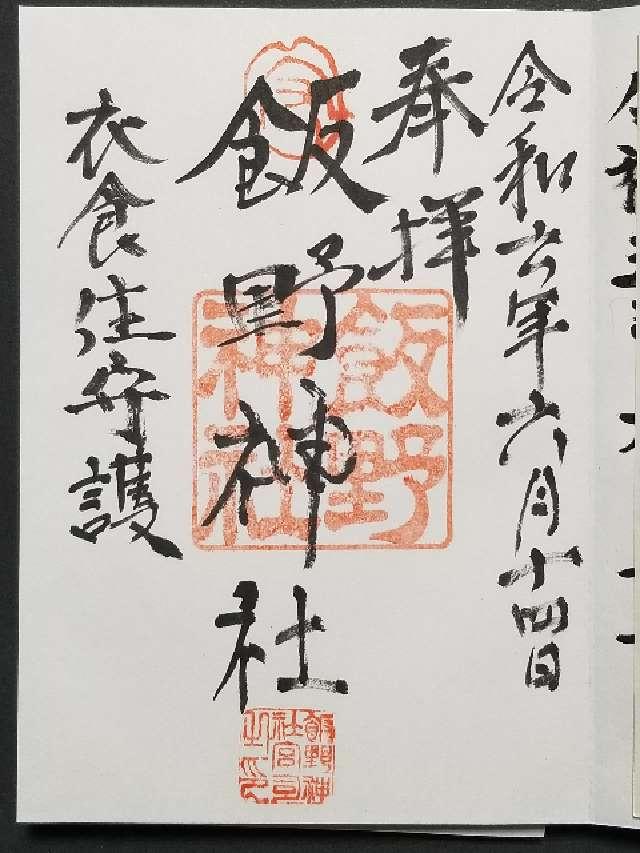 令和六年六月十四日
奉拝
飯野神社
衣食住守護
飯野神社
飯野神社宮司之印